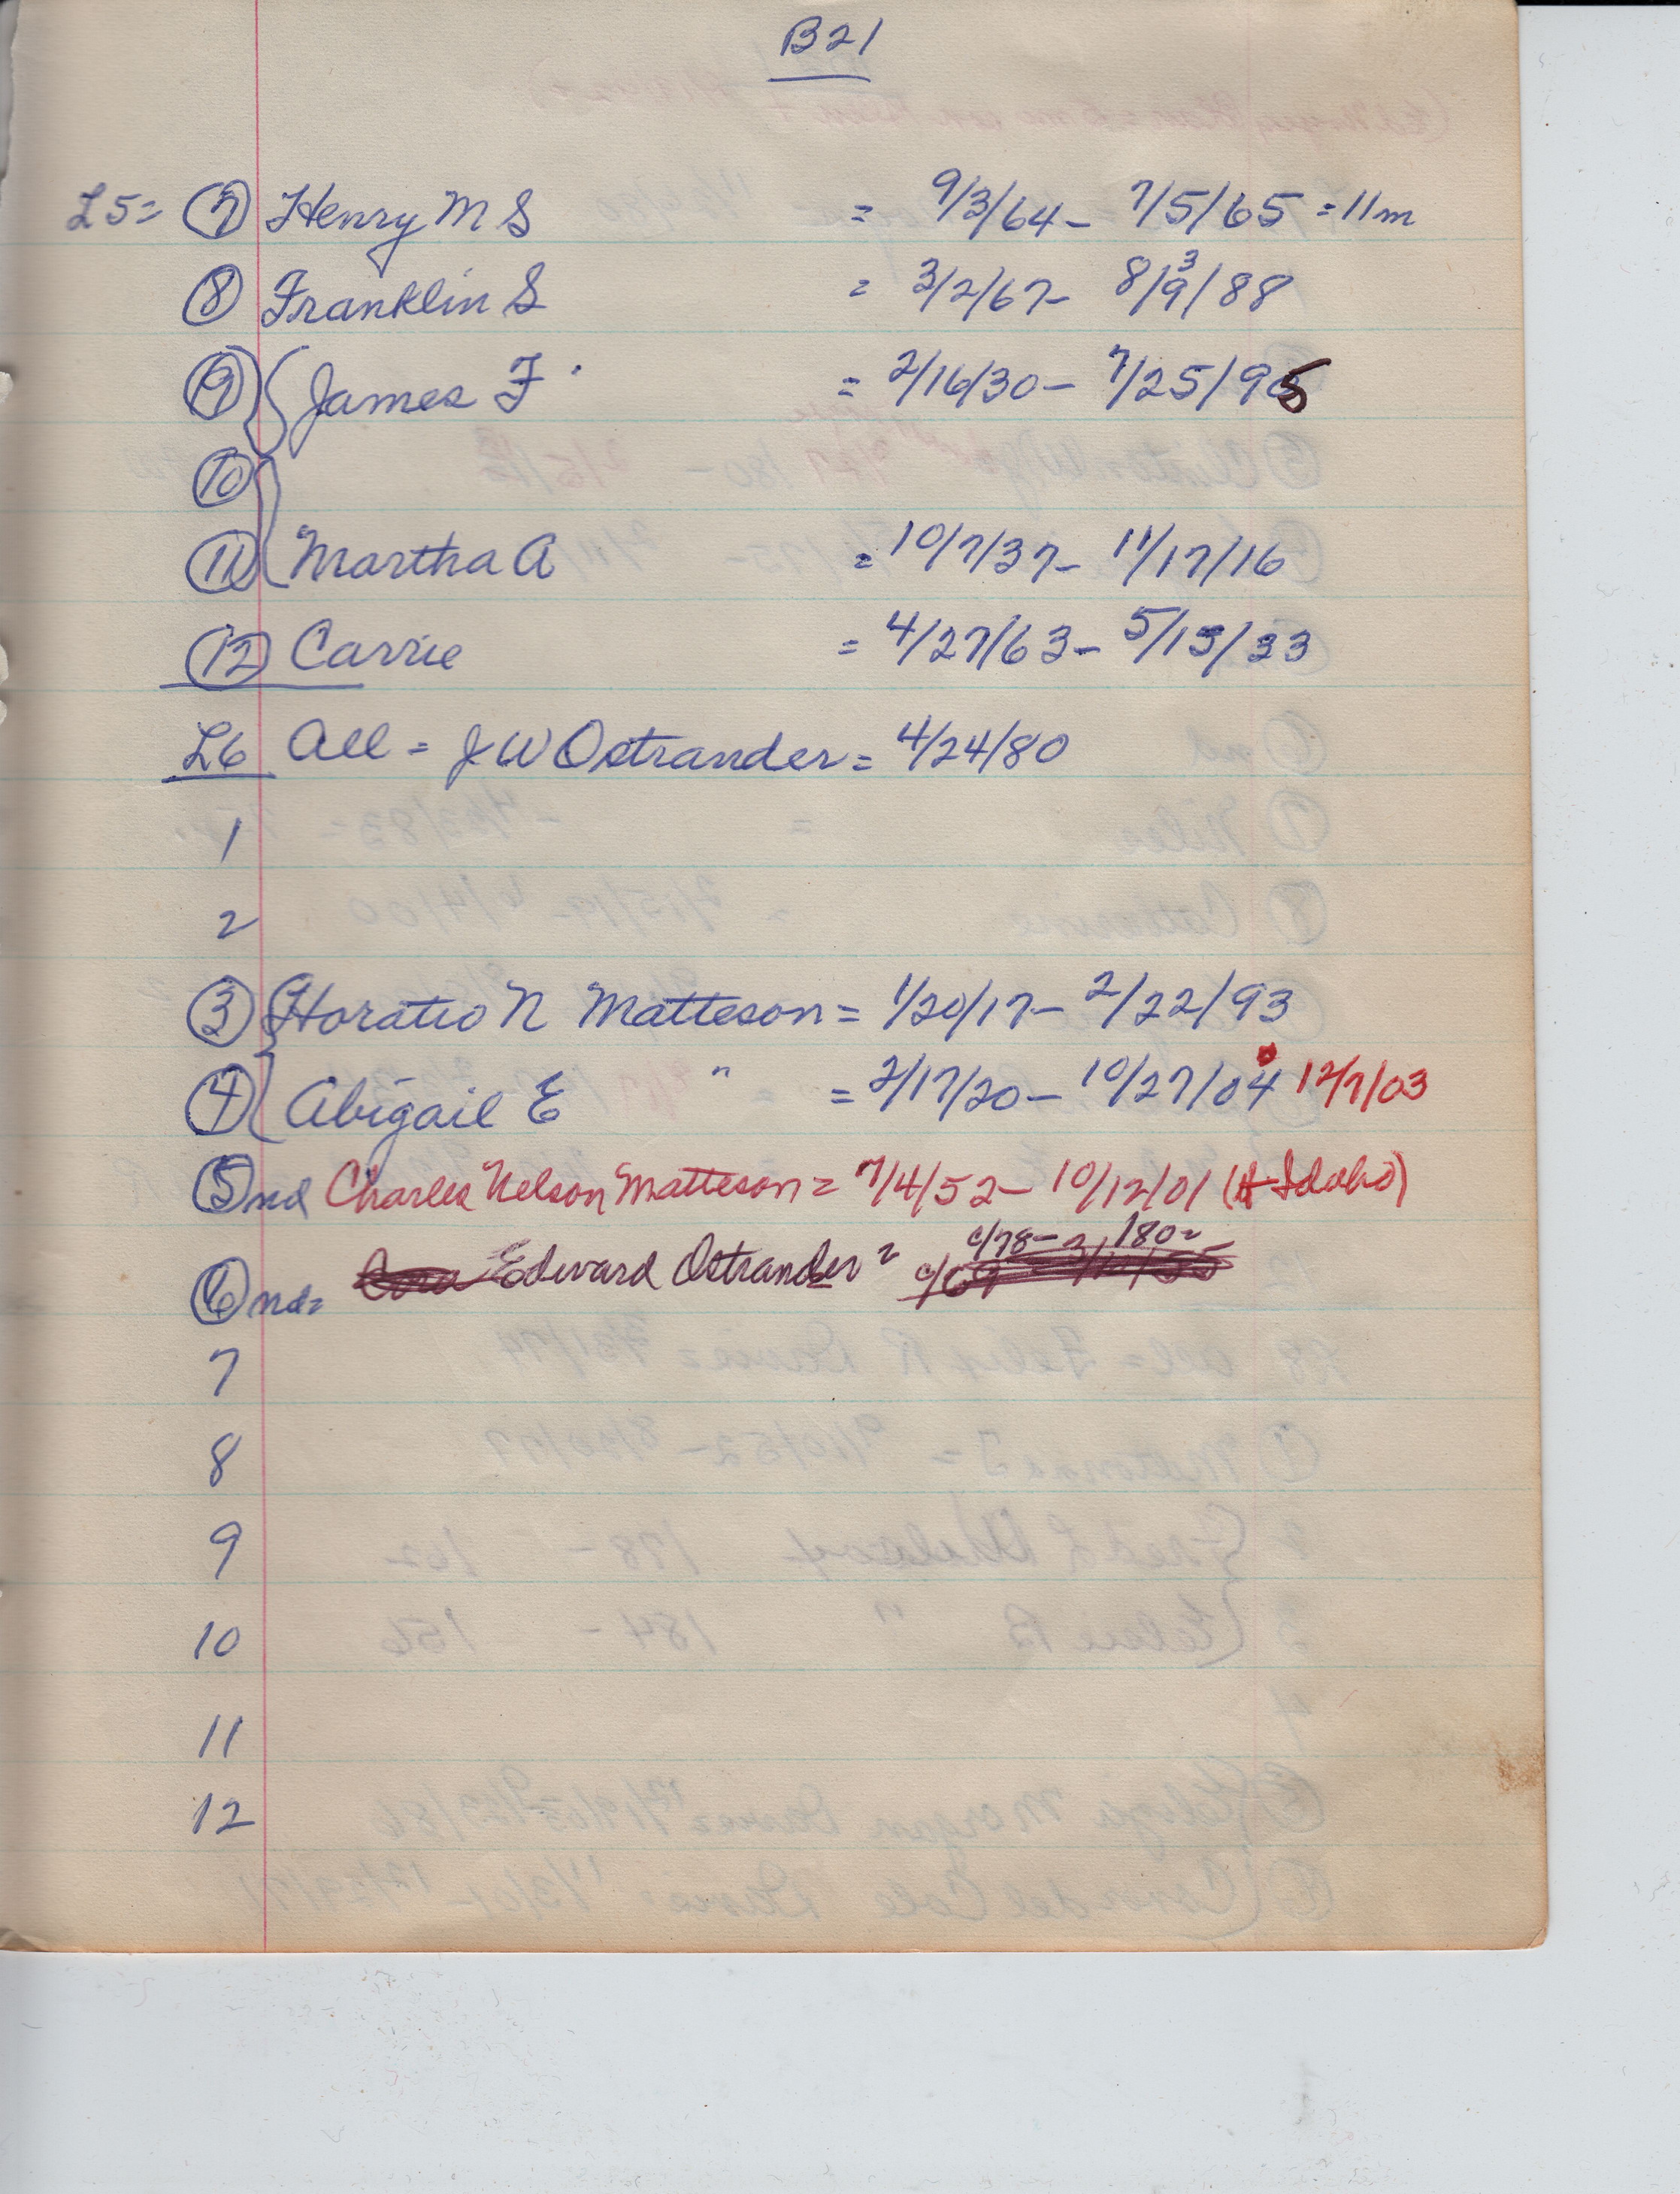 B21
L5= 7 Henry M S = 9/3/64- 7/5/65 =11m
8 Franklin S = 3/2/67- 8/9/88
3
9 James F. = 2/16/30- 7/25/95
10
11 Martha A = 10/7/37- 11/17/16
12 Carrie = 4/27/63- 5/15/33
L6 All = J W Ostrander = 4/24/80
1
2
3 Horatio N Matteson = 1/20/17- 2/22/93
4 Abigail E " = 2/17/20- 10/27/04 12/7/03
5 nd Charles Nelson Matteson = 7/4/52- 10/12/01 (A-Idaho)
6 nd= Edward Ostrander = c/78- 180=
7
8
9
10
11
12